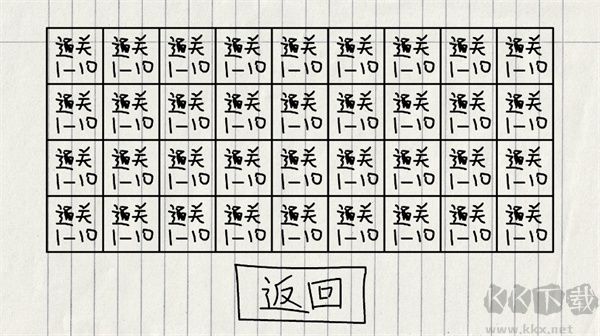 通关 通关 通关 通关 通关 通关 通关 通关 通关
1-10 1-10 1-10 1-10 1-10 1-10 1-10 1-10 1-10
通关 通关 通关 通关 通关 通关 通关 通关 通关
1-10 1-10 1-10 1-10 1-10 1-10 1-10 1-10 1-10
通关 通关 通关 通关 通关 通关 通关 通关 通关
1-10 1-10 1-10 1-10 1-10 1-10 1-10 1-10 1-10
通关 通关 通关 通关 通关 通关 通关 通关 通关
1-10 1-10 1-10 1-10 1-10 1-10 1-10 1-10 1-10
返回
KK下载
www.kkx.net